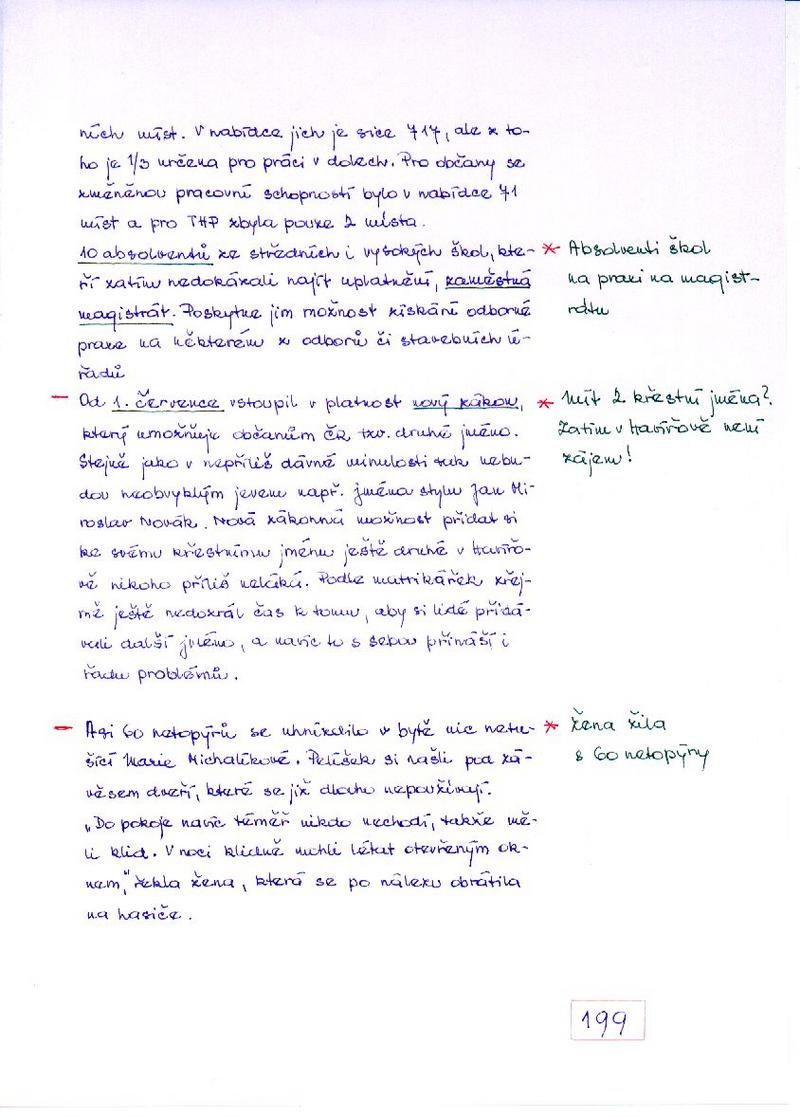 ních míst. V nabídce jich je sice 717, ale z to-
ho je 1/3 určena pro práci v dolech. Pro občany se
změněnou pracovní schopností bylo v nabídce 71
míst a pro THP zbyla pouze 2 místa.
10 absolventů ze středních i vysokých škol, kte-
ří zatím nedokázali najít uplatnění, zaměstná
magistrát. Poskytne jim možnost získání odborné
praxe na některém z odborů či stavebních ú-
řadů
* Absolventi škol
na praxi na magist-
rátu
– Od 1. července vstoupil v platnost nový zákon,
který umožňuje občanům ČR tzv. druhé jméno.
Stejně jako v nepříliš dávné minulosti tak nebu-
dou neobvyklým jevem např. jména stylu Jan Mi-
roslav Novák. Nová zákonná možnost přidat si
ke svému křestnímu jménu ještě druhé v Havířo-
vě nikoho příliš neláká. Podle matrikářek zřej-
mě ještě nedozrál čas k tomu, aby si lidé přidá-
vali další jméno, a navíc to s sebou přináší i
řadu problémů.
* Mít 2 křestní jména?
Zatím v Havířově není
zájem!
– Asi 60 netopýrů se uhnízdilo v bytě nic netu-
šící Marie Michalíkové. Pelíšek si našli pod zá-
věsem dveří, které se již dlouho nepoužívají.
„Do pokoje navíc téměř nikdo nechodí, takže mě-
li klid. V noci klidně mohli létat otevřeným ok-
nem," řekla žena, která se po nálezu obrátila
na hasiče.
* Žena žila
s 60 netopýry
199